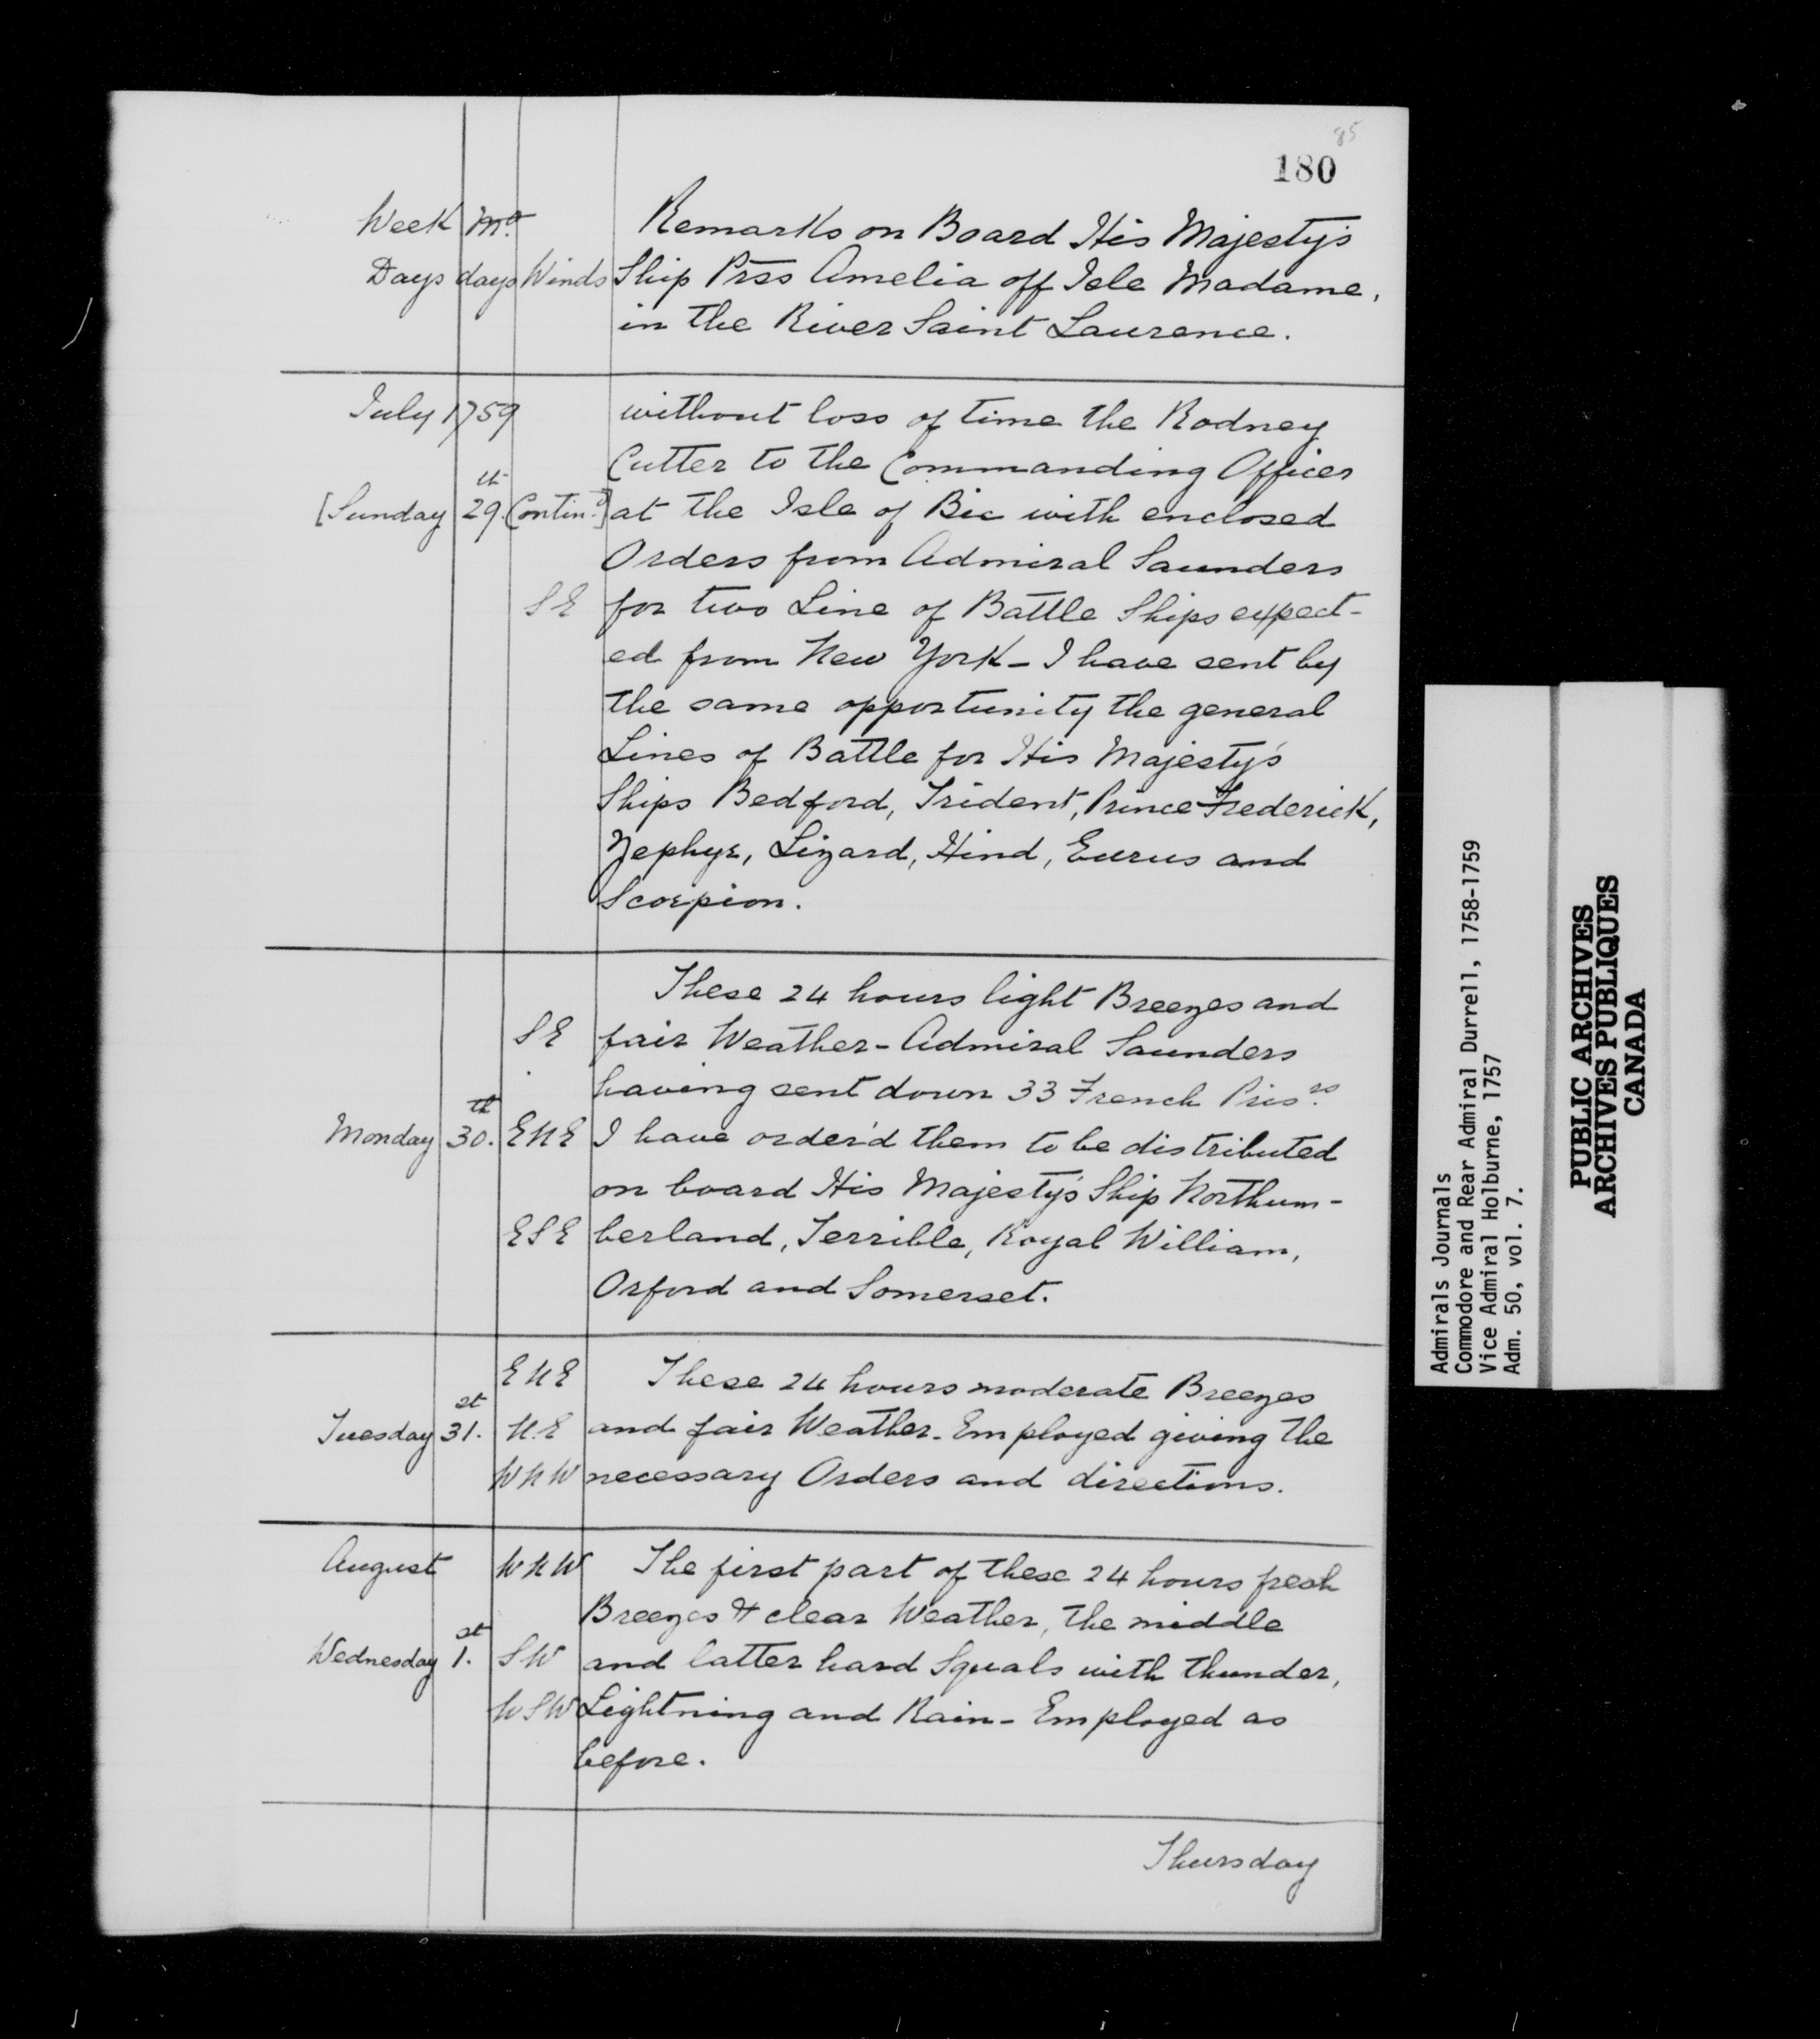 85
180
Week Mo. Remarks on Board His Majesty's
Days days Winds Ship Prss Amelia off Isle Madame,
in the River Saint Laurence.
July 1759 without loss of time the Rodney
Cutter to the Commanding Officer
[Sunday 29th Contind.] at the Isle of Bic with enclosed
Orders from Admiral Saunders
SE for two Line of Battle Ships expect-
ed from New York - I have sent by
the same opportunity the general
Lines of Battle for His Majesty's
Ships Bedford, Trident, Prince Frederick,
Zephyr, Lizard, Hind, Eurus and
Scorpion.
These 24 hours light Breezes and
SE fair Weather - Admiral Saunders
having sent down 33 French Prisrs.
Monday 30th. ENE I have order'd them to be distributed
on board His Majesty's Ship Northum-
ESE berland, Terrible, Royal William,
Orford and Somerset.
ENE These 24 hours moderate Breezes
Tuesday 31st. N.E and fair Weather - Employed giving the
WNW necessary Orders and directions.
August WNW The first part of these 24 hours fresh
Breezes & clear Weather, the middle
Wednesday 1st. SW and latter hard Squals with thunder,
WSW Lightning and Rain - Employed as
before.
Thursday
Admirals Journals
Commodore and Rear Admiral Durrell, 1758-1759
Vice Admiral Holburne, 1757
Adm. 50, vol. 7.
PUBLIC ARCHIVES
ARCHIVES PUBLIQUES
CANADA